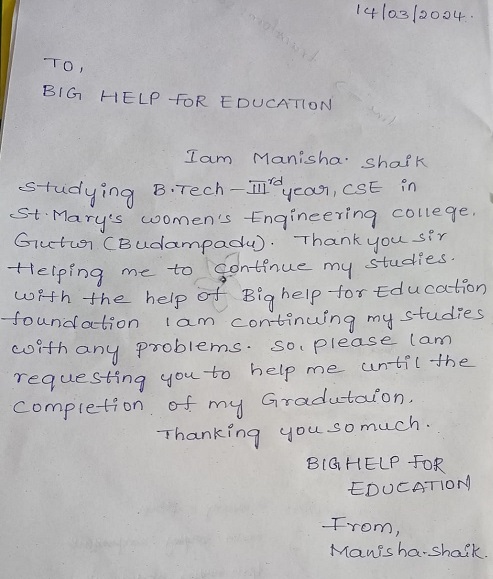 14/03/2024.
TO,
BIG HELP FOR EDUCATION
Iam Manisha. Shaik
studying B.Tech - IIIrd year, CSE in
St. Mary's women's Engineering college.
Guntur (Budampadu). Thank you sir
Helping me to continue my studies.
with the help of Big help for Education
foundation Iam continuing my studies
with any problems. So, please Iam
requesting you to help me until the
completion of my Gradutaion.
Thanking you so much.
BIG HELP FOR
EDUCATION
From,
Manisha.shaik.